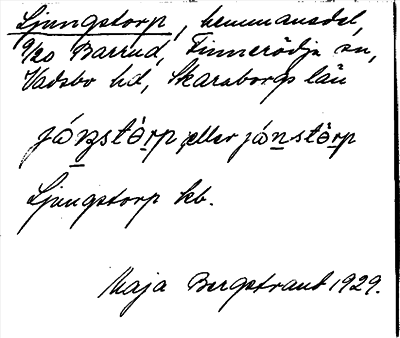 Ljungstorp, hemmansdel,
9/20 Barrud, Finnerödja sn,
Vadsbo hd, Skaraborgs län
jóŋstòrp eller jónstòrp
Ljungstorp kb.
Maja Bergstrand 1929.